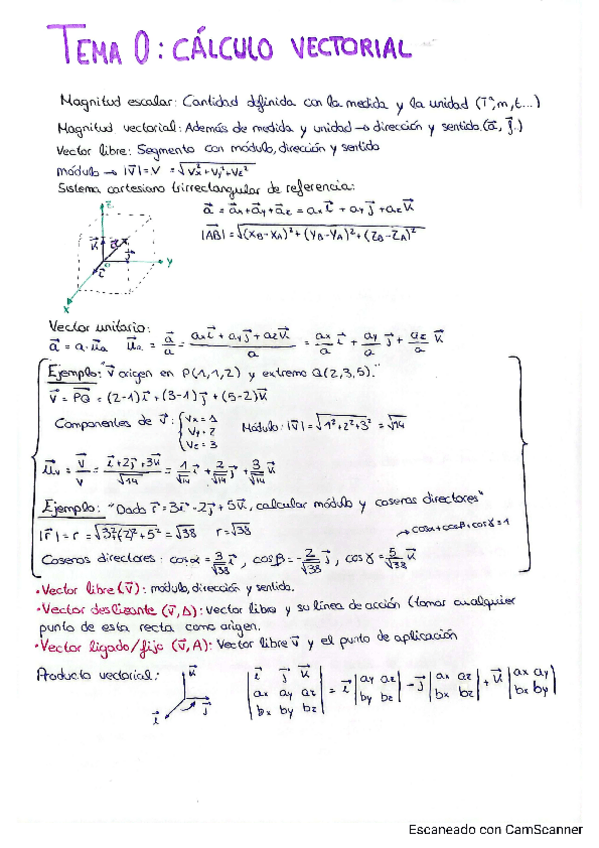 TEMA 0: CÁLCULO VECTORIAL
Magnitud escalar: Cantidad definida con la medida y la unidad (Tª, m, t...)
Magnitud vectorial: Además de medida y unidad → dirección y sentido. (a⃗, j⃗.)
Vector libre: Segmento con módulo, dirección y sentido
módulo → |V⃗| = V = √(Vx²+Vy²+Vz²)
Sistema cartesiano trirrectangular de referencia:
z
a⃗ = a⃗x + a⃗y + a⃗z = ax i⃗ + ay j⃗ + az k⃗
|AB⃗| = √((xB-xA)² + (yB-yA)² + (zB-zA)²)
k⃗ a⃗ j⃗ y
i⃗
x
Vector unitario:
a⃗ = a · u⃗a u⃗a = a⃗/a = (ax i⃗ + ay j⃗ + az k⃗)/a = ax/a i⃗ + ay/a j⃗ + az/a k⃗
Ejemplo: "V⃗ origen en P(1,1,2) y extremo Q(2,3,5)."
V⃗ = PQ⃗ = (2-1) i⃗ + (3-1) j⃗ + (5-2) k⃗
Componentes de V⃗: { Vx = 1 Vy = 2 Vz = 3 Módulo: |V⃗| = √(1²+2²+3²) = √14
u⃗v = V⃗/V = (i⃗+2j⃗+3k⃗)/√14 = 1/√14 i⃗ + 2/√14 j⃗ + 3/√14 k⃗
Ejemplo: "Dado r⃗ = 3i⃗ - 2j⃗ + 5k⃗, calcular módulo y cosenos directores"
|r⃗| = r = √(3²+(2)²+5²) = √38 r = √38 → cosα+cosβ+cosγ = 1
Cosenos directores: cosα = 3/√38 i⃗, cosβ = -2/√38 j⃗, cosγ = 5/√38 k⃗
•Vector libre (V⃗): módulo, dirección y sentido.
•Vector deslizante (V⃗, Δ): Vector libre y su línea de acción (tomar cualquier
punto de esta recta como origen.
•Vector ligado/fijo (V⃗, A): Vector libre V⃗ y el punto de aplicación
Producto vectorial: k⃗ i⃗ j⃗ | i⃗ j⃗ k⃗ ; ax ay az ; bx by bz | = i⃗ | ay az ; by bz | - j⃗ | ax az ; bx bz | + k⃗ | ax ay ; bx by |
Escaneado con CamScanner